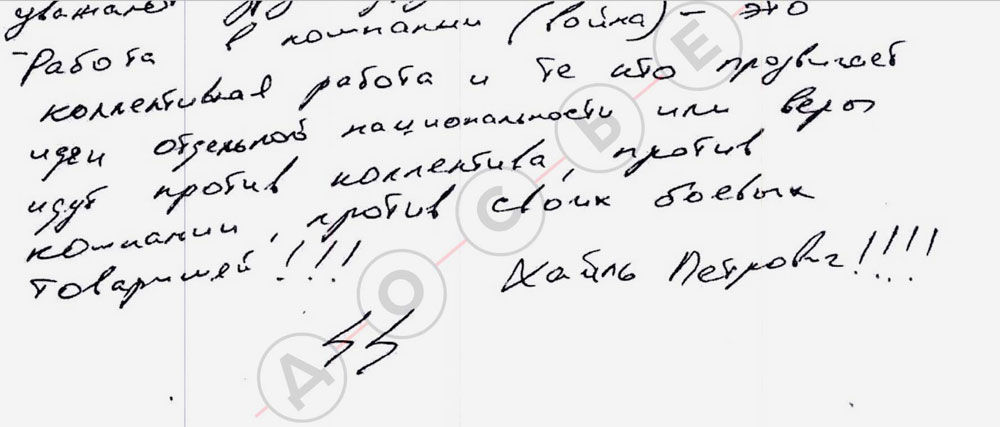 уважает
- Работа в компании (война) - это
коллективная работа и те кто продвигает
идеи отдельной национальности или веры
идут против коллектива, против
компании, против своих боевых
товарищей!!!
Хайль Петрович!!!!
ДОСЬЕ